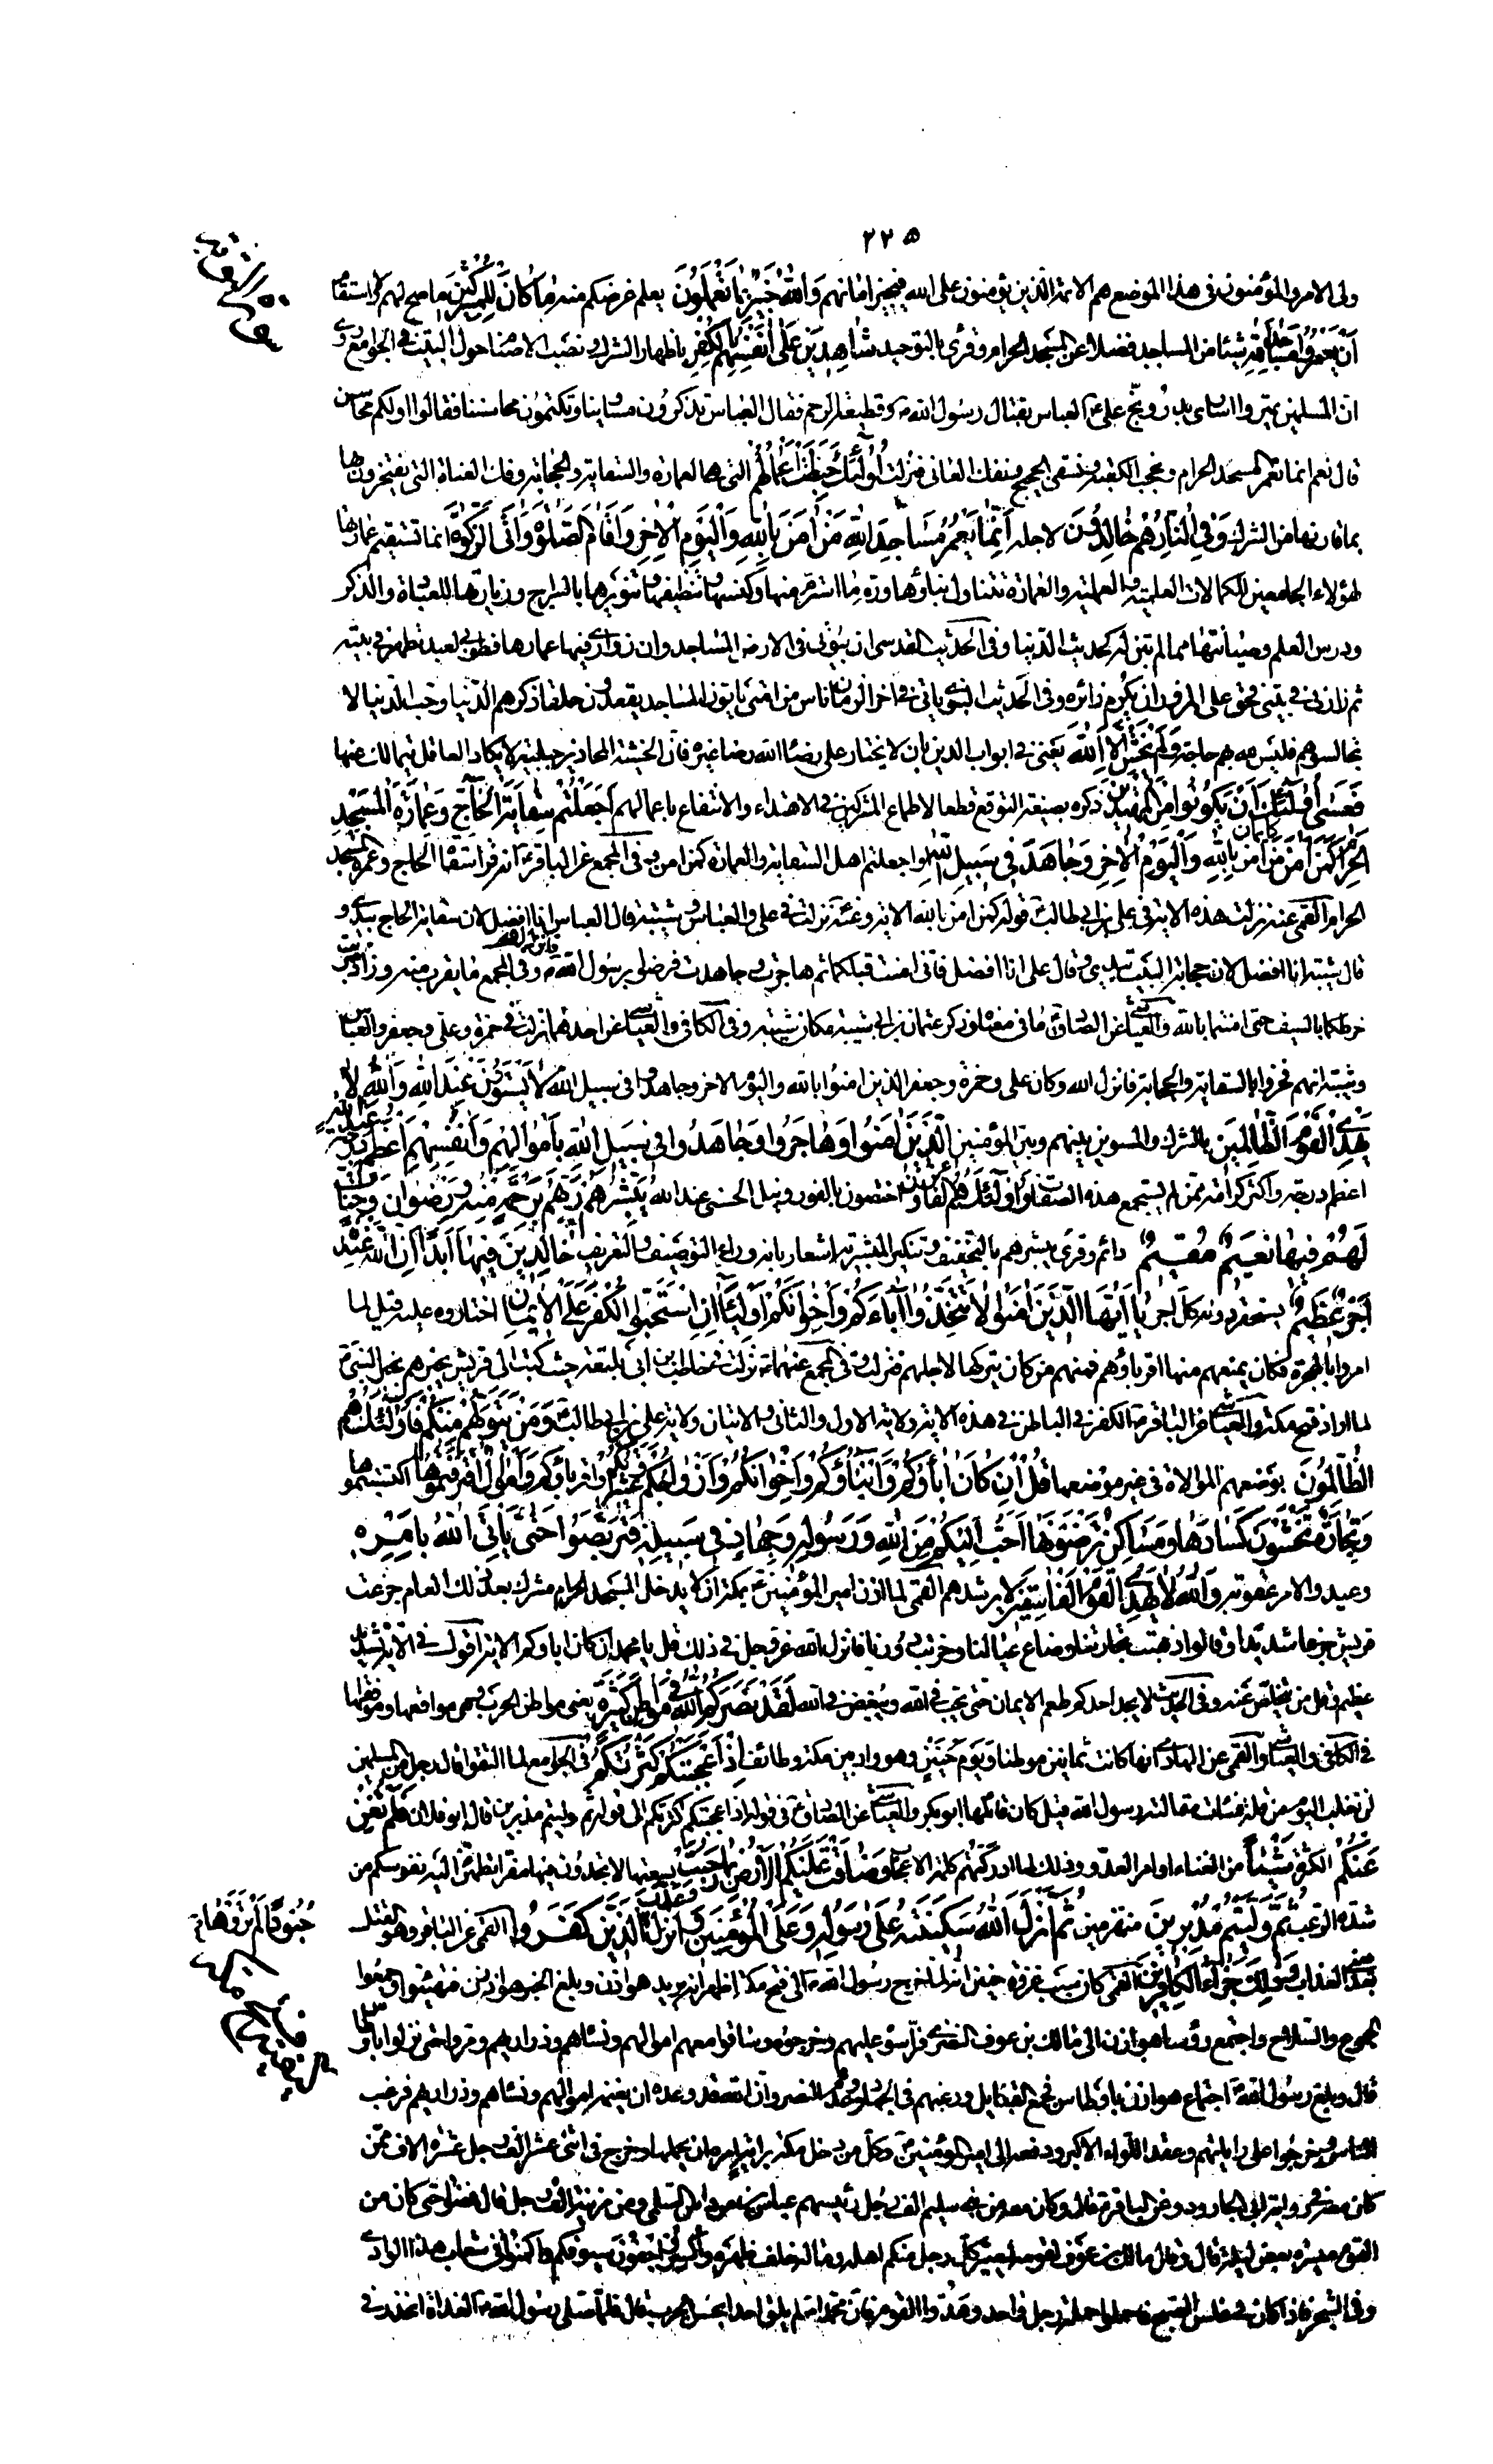 ٢٢٥
ولى الامر والمؤمنون فى هذا الموضع هم الائمة الذين يؤمنون على الله فيجيز امانهم وَاللّٰهُ خَبِيرٌ بِمَا تَعْمَلُونَ يعلم غرضكم منه مَا كَانَ لِلْمُشْرِكِينَ ما صح لهم وما استقام
أَنْ يَعْمُرُوا مَسَاجِدَ اللهِ شيئا من المساجد فضلا عن المسجد الحرام وقرئ بالتوحيد شَاهِدِينَ عَلَىٰ أَنْفُسِهِمْ بِالْكُفْرِ باظهار الشرك ونصب الاصنام حول البيت فى الجوامع روى
ان المسلمين عيروا اسارى بدر ووبخ على ع العباس بقتال رسول الله ص وقطيعة الرحم فقال العباس تذكرون مساوينا وتكتمون محاسننا فقالوا اولكم محاسن
قال نعم انما نعمر المسجد الحرام ونحجب الكعبة ونسقى الحجيج ونفك العانى فنزلت أُولٰئِكَ حَبِطَتْ أَعْمَالُهُمْ التى هى العمارة والسقاية والحجابة وفك العناة التى يفتخرون بها
بما قارنها من الشرك وَفِي النَّارِ هُمْ خَالِدُونَ لاجله إِنَّمَا يَعْمُرُ مَسَاجِدَ اللهِ مَنْ آمَنَ بِاللهِ وَالْيَوْمِ الْآخِرِ وَأَقَامَ الصَّلَوٰةَ وَآتَى الزَّكَوٰةَ انما تستقيم عمارتها
لهؤلاء الجامعين للكمالات العلمية والعملية والعمارة تتناول بناؤها ورم ما استرم منها وكنسها وتنظيفها وتنويرها بالسراج وزيارتها للعبادة والذكر
ودرس العلم وصيانتها مما لم تبن له كحديث الدنيا وفى الحديث القدسى ان بيوتى فى الارض المساجد وان زوارى فيها عمارها فطوبى لعبد تطهر فى بيته
ثم زارنى فى بيتى فحق على المزور ان يكرم زائره وفى الحديث النبوى ياتى فى اخر الزمان ناس من امتى ياتون المساجد يقعدون حلقا ذكرهم الدنيا وحب الدنيا لا
تجالسوهم فليس لله بهم حاجة وَلَمْ يَخْشَ إِلَّا اللهَ يعنى فى ابواب الدين بان لا يختار على رضاء الله رضا غيره فان الخشية عن المحاذير جبلية لا يكاد العاقل يتمالك عنها
فَعَسَىٰ أُولٰئِكَ أَنْ يَكُونُوا مِنَ الْمُهْتَدِينَ ذكره بصيغة التوقع قطعا لاطماع المشركين فى الاهتداء والانتفاع باعمالهم أَجَعَلْتُمْ سِقَايَةَ الْحَاجِّ وَعِمَارَةَ الْمَسْجِدِ
الْحَرَامِ كَمَنْ آمَنَ بِاللهِ وَالْيَوْمِ الْآخِرِ وَجَاهَدَ فِي سَبِيلِ اللهِ او اجعلتم اهل السقاية والعمارة كمن امن وفى المجمع عن الباقر ع انه قرأ سقاة الحاج وعمرة المسجد
الحرام القمى عنه نزلت هذه الاية فى على بن ابى طالب قوله كمن امن بالله الاية وعنه نزلت فى على والعباس وشيبة قال العباس انا افضل لان سقاية الحاج بيدى و
قال شيبة انا افضل لان حجابة البيت بيدى وقال على انا افضل فانى امنت قبلكما ثم هاجرت وجاهدت فرضوا برسول الله ص وفى المجمع ما يقرب منه وزاد
خرطكما بالسيف حتى امنتما بالله والعياشى عن الصادق ع ما فى معناه وذكر عثمان بن ابى شيبة مكان شيبة وفى الكافى والعياشى عن احدهما نزلت فى حمزة وعلى وجعفر والعباس
وشيبة انهم فخروا بالسقاية والحجابة فانزل الله وكان على وحمزة وجعفر الذين امنوا بالله واليوم الاخر وجاهدوا فى سبيل الله لَا يَسْتَوُونَ عِنْدَ اللهِ وَاللهُ لَا
يَهْدِي الْقَوْمَ الظَّالِمِينَ بالشرك والمسوين بينهم وبين المؤمنين الَّذِينَ آمَنُوا وَهَاجَرُوا وَجَاهَدُوا فِي سَبِيلِ اللهِ بِأَمْوَالِهِمْ وَأَنْفُسِهِمْ أَعْظَمُ دَرَجَةً عِنْدَ اللهِ
اعظم درجة واكثر كرامة ممن لم يستجمع هذه الصفات وَأُولٰئِكَ هُمُ الْفَائِزُونَ المختصون بالفوز ونيل الحسنى عند الله يُبَشِّرُهُمْ رَبُّهُمْ بِرَحْمَةٍ مِنْهُ وَرِضْوَانٍ وَجَنَّاتٍ
لَهُمْ فِيهَا نَعِيمٌ مُقِيمٌ دائم وقرئ يبشرهم بالتخفيف وتنكير المبشر به اشعار بانه وراء التوصيف والتعريف خَالِدِينَ فِيهَا أَبَدًا إِنَّ اللهَ عِنْدَهُ
أَجْرٌ عَظِيمٌ يستحقر دونه كل اجر يَا أَيُّهَا الَّذِينَ آمَنُوا لَا تَتَّخِذُوا آبَاءَكُمْ وَإِخْوَانَكُمْ أَوْلِيَاءَ إِنِ اسْتَحَبُّوا الْكُفْرَ عَلَى الْإِيمَانِ اختاروه عليه قيل لما
امروا بالهجرة فكان يمنعهم منها اقرباؤهم فمنهم من كان يتركها لاجلهم فنزلت وفى المجمع عنهما ع نزلت فى حاطب ابن ابى بلتعة حيث كتب الى قريش يخبرهم بخبر النبى ص
لما اراد فتح مكة والعياشى عن الباقر ع الكفر فى الباطن فى هذه الاية ولاية الاول والثانى والايمان ولاية على بن ابى طالب وَمَنْ يَتَوَلَّهُمْ مِنْكُمْ فَأُولٰئِكَ هُمُ
الظَّالِمُونَ بوضعهم الموالاة فى غير موضعها قُلْ إِنْ كَانَ آبَاؤُكُمْ وَأَبْنَاؤُكُمْ وَإِخْوَانُكُمْ وَأَزْوَاجُكُمْ وَعَشِيرَتُكُمْ واقرباؤكم وَأَمْوَالٌ اقْتَرَفْتُمُوهَا اكتسبتموها
وَتِجَارَةٌ تَخْشَوْنَ كَسَادَهَا وَمَسَاكِنُ تَرْضَوْنَهَا أَحَبَّ إِلَيْكُمْ مِنَ اللهِ وَرَسُولِهِ وَجِهَادٍ فِي سَبِيلِهِ فَتَرَبَّصُوا حَتَّىٰ يَأْتِيَ اللهُ بِأَمْرِهِ
وعيد والامر عقوبة وَاللهُ لَا يَهْدِي الْقَوْمَ الْفَاسِقِينَ لا يرشدهم القمى لما اذن امير المؤمنين ع بمكة ان لا يدخل المسجد الحرام مشرك بعد ذلك العام جزعت
قريش جزعا شديدا وقالوا ذهبت تجارتنا وضاع عيالنا وخربت دورنا فانزل الله عز وجل فى ذلك قل يا محمد ان كان اباؤكم الاية اقول فى الاية تشديد
عظيم وقل من يتخلص عنه وفى الحديث لا يجد احدكم طعم الايمان حتى يحب فى الله ويبغض فى الله لَقَدْ نَصَرَكُمُ اللهُ فِي مَوَاطِنَ كَثِيرَةٍ يعنى مواطن الحرب وهى مواقعها ومواقفها
فى الكافى والعياشى والقمى عن الهادى ع انها كانت ثمانين موطنا وَيَوْمَ حُنَيْنٍ وهو واد بين مكة وطائف إِذْ أَعْجَبَتْكُمْ كَثْرَتُكُمْ فى الجوامع لما التقوا قال رجل من المسلمين
لن نغلب اليوم من قلة فساءت مقالته رسول الله قيل كان قائلها ابو بكر والعياشى عن الصادق ع فى قوله اذ اعجبتكم كثرتكم الى قوله ثم وليتم مدبرين قال ابو فلان فَلَمْ تُغْنِ
عَنْكُمْ الكثرة شَيْئًا من الغناء او امر العدو وذلك لما ادركتهم كلمة الاعجاب وَضَاقَتْ عَلَيْكُمُ الْأَرْضُ بِمَا رَحُبَتْ بسعتها لا تجدون فيها مقرا تطمئن اليه نفوسكم من
شدة الرعب ثُمَّ وَلَّيْتُمْ مُدْبِرِينَ منهزمين ثُمَّ أَنْزَلَ اللهُ سَكِينَتَهُ عَلَىٰ رَسُولِهِ وَعَلَى الْمُؤْمِنِينَ وَأَنْزَلَ وَعَذَّبَ الَّذِينَ كَفَرُوا القمى عن الباقر ع وهو القتل
جُنُودًا لَمْ تَرَوْهَا
العذاب وَذٰلِكَ جَزَاءُ الْكَافِرِينَ القمى كان سبب غزوة حنين انه لما خرج رسول الله ص الى فتح مكة اظهر انه يريد هوازن وبلغ الخبر هوازن فتهيئوا وجمعوا
الجموع والسلاح واجتمع رؤساء هوازن الى مالك بن عوف النضرى فرأسوه عليهم وخرجوا وساقوا معهم اموالهم ونساءهم وذراريهم ومروا حتى نزلوا باوطاس
قال وبلغ رسول الله ص اجتماع هوازن باوطاس فجمع القبايل ورغبهم فى الجهاد ووعدهم النصر وان الله قد وعده ان يغنمه اموالهم ونساءهم وذراريهم فرغب
الناس وخرجوا على راياتهم وعقد اللواء الاكبر ودفعه الى امير المؤمنين ع وكل من دخل مكة براية امره ان يحملها وخرج فى اثنى عشر الف رجل عشرة الاف ممن
كان معه وفى رواية ابى الجارود عن الباقر ع قال وكان معه من بنى سليم الف رجل رئيسهم عباس بن مرداس السلمى ومن مزينة الف رجل قال فمضوا حتى كان من
القوم مسيرة بعض ليلة قال وقال مالك بن عوف لقومه ليصير كل رجل منكم اهله وماله خلف ظهره واكسروا جفون سيوفكم واكمنوا فى شعاب هذا الوادى
وفى الشجر فاذا كان فى غلس الصبح فاحملوا حملة رجل واحد وهدوا القوم فان محمدا ص لم يلق احدا يحسن الحرب قال فلما صلى رسول الله ص الغداة انحدر فى